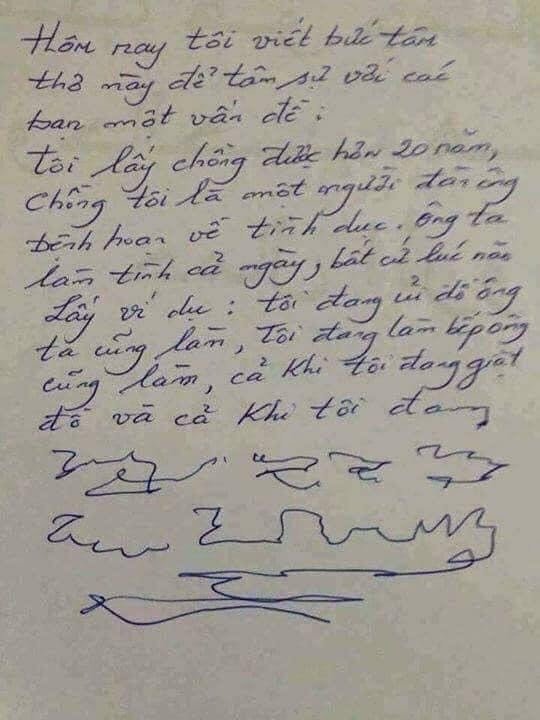 Hôm nay tôi viết bức tâm
thơ này để tâm sự với các
bạn một vấn đề :
Tôi lấy chồng được hơn 20 năm,
Chồng tôi là một người đàn ông
bệnh hoạn về tình dục. Ông ta
làm tình cả ngày, bất cứ lúc nào
Lấy ví dụ : tôi đang ủi đồ ông
ta cũng làm, Tôi đang làm bếp ông
cũng làm, cả khi tôi đang giặt
đồ và cả khi tôi đang